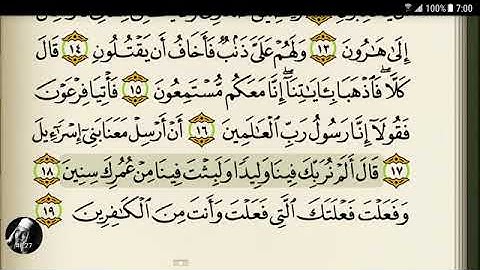 7:00
إِلَىٰ هَٰرُونَ ١٣ وَلَهُمْ عَلَىَّ ذَنۢبٌ فَأَخَافُ أَن يَقْتُلُونِ ١٤ قَالَ
كَلَّا ۖ فَٱذْهَبَا بِـَٔايَٰتِنَآ ۖ إِنَّا مَعَكُم مُّسْتَمِعُونَ ١٥ فَأْتِيَا فِرْعَوْنَ
فَقُولَآ إِنَّا رَسُولُ رَبِّ ٱلْعَٰلَمِينَ ١٦ أَنْ أَرْسِلْ مَعَنَا بَنِىٓ إِسْرَٰٓءِيلَ
١٧ قَالَ أَلَمْ نُرَبِّكَ فِينَا وَلِيدًا وَلَبِثْتَ فِينَا مِنْ عُمُرِكَ سِنِينَ ١٨
وَفَعَلْتَ فَعْلَتَكَ ٱلَّتِى فَعَلْتَ وَأَنتَ مِنَ ٱلْكَٰفِرِينَ ١٩